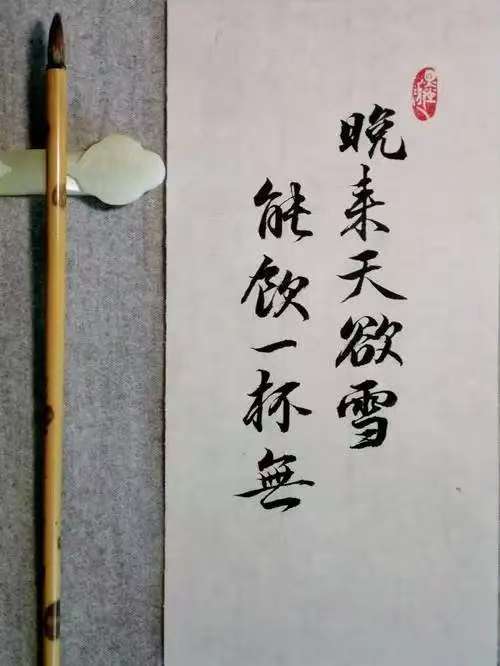 晚来天欲雪
能饮一杯無